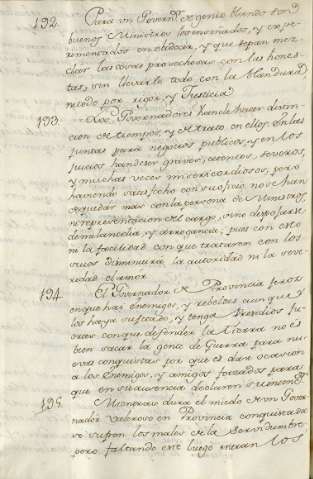 192. Para un Governor. de genio blando son
buenos Ministros los enseñados, y expe-
rimentados en el decir, y que sepan mez-
clar las cosas provechosas con las hones-
tas, sin llevarlo todo con la blandura,
miedo por rigor, y Justicia
193. Los Governadores han de hacer distin-
cion de tiempos, y de trato en ellos. En las
Juntas para negocios publicos, y en los
Juicios han de ser graves, atentos, severos,
y muchas veces misericordiosos, pero
haviendo satisfecho con su oficio no se han
de quedar mas con la persona de Ministros,
ni representacion del cargo, sino despojarse
de melancolia, y de arrogancia, pues con esto
ni la facilidad con que trataren con los
suyos disminuirá la autoridad, ni la seve-
ridad el amor
194. El Governador de Provincia feroz
en que hai enemigos, y rebeldes aunque
los haya sugetado, y tenga Presidios fu-
ertes con que defender la tierra no es
bien sacar la gente de Guerra para nu-
evas conquistas por que es dar ocasion
a los enemigos, y amigos forzados para
que en su ausencia declaren su enemd.
195. Mientras dura el miedo de un Gover-
nador Valeroso en Provincia conquistada
se sufren los males de la Servidumbre
pero faltando este luego intentan los